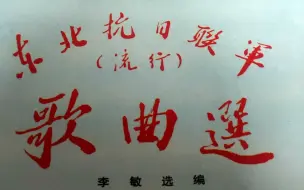 东北抗日联军
(流行)
歌曲選
李敏选编